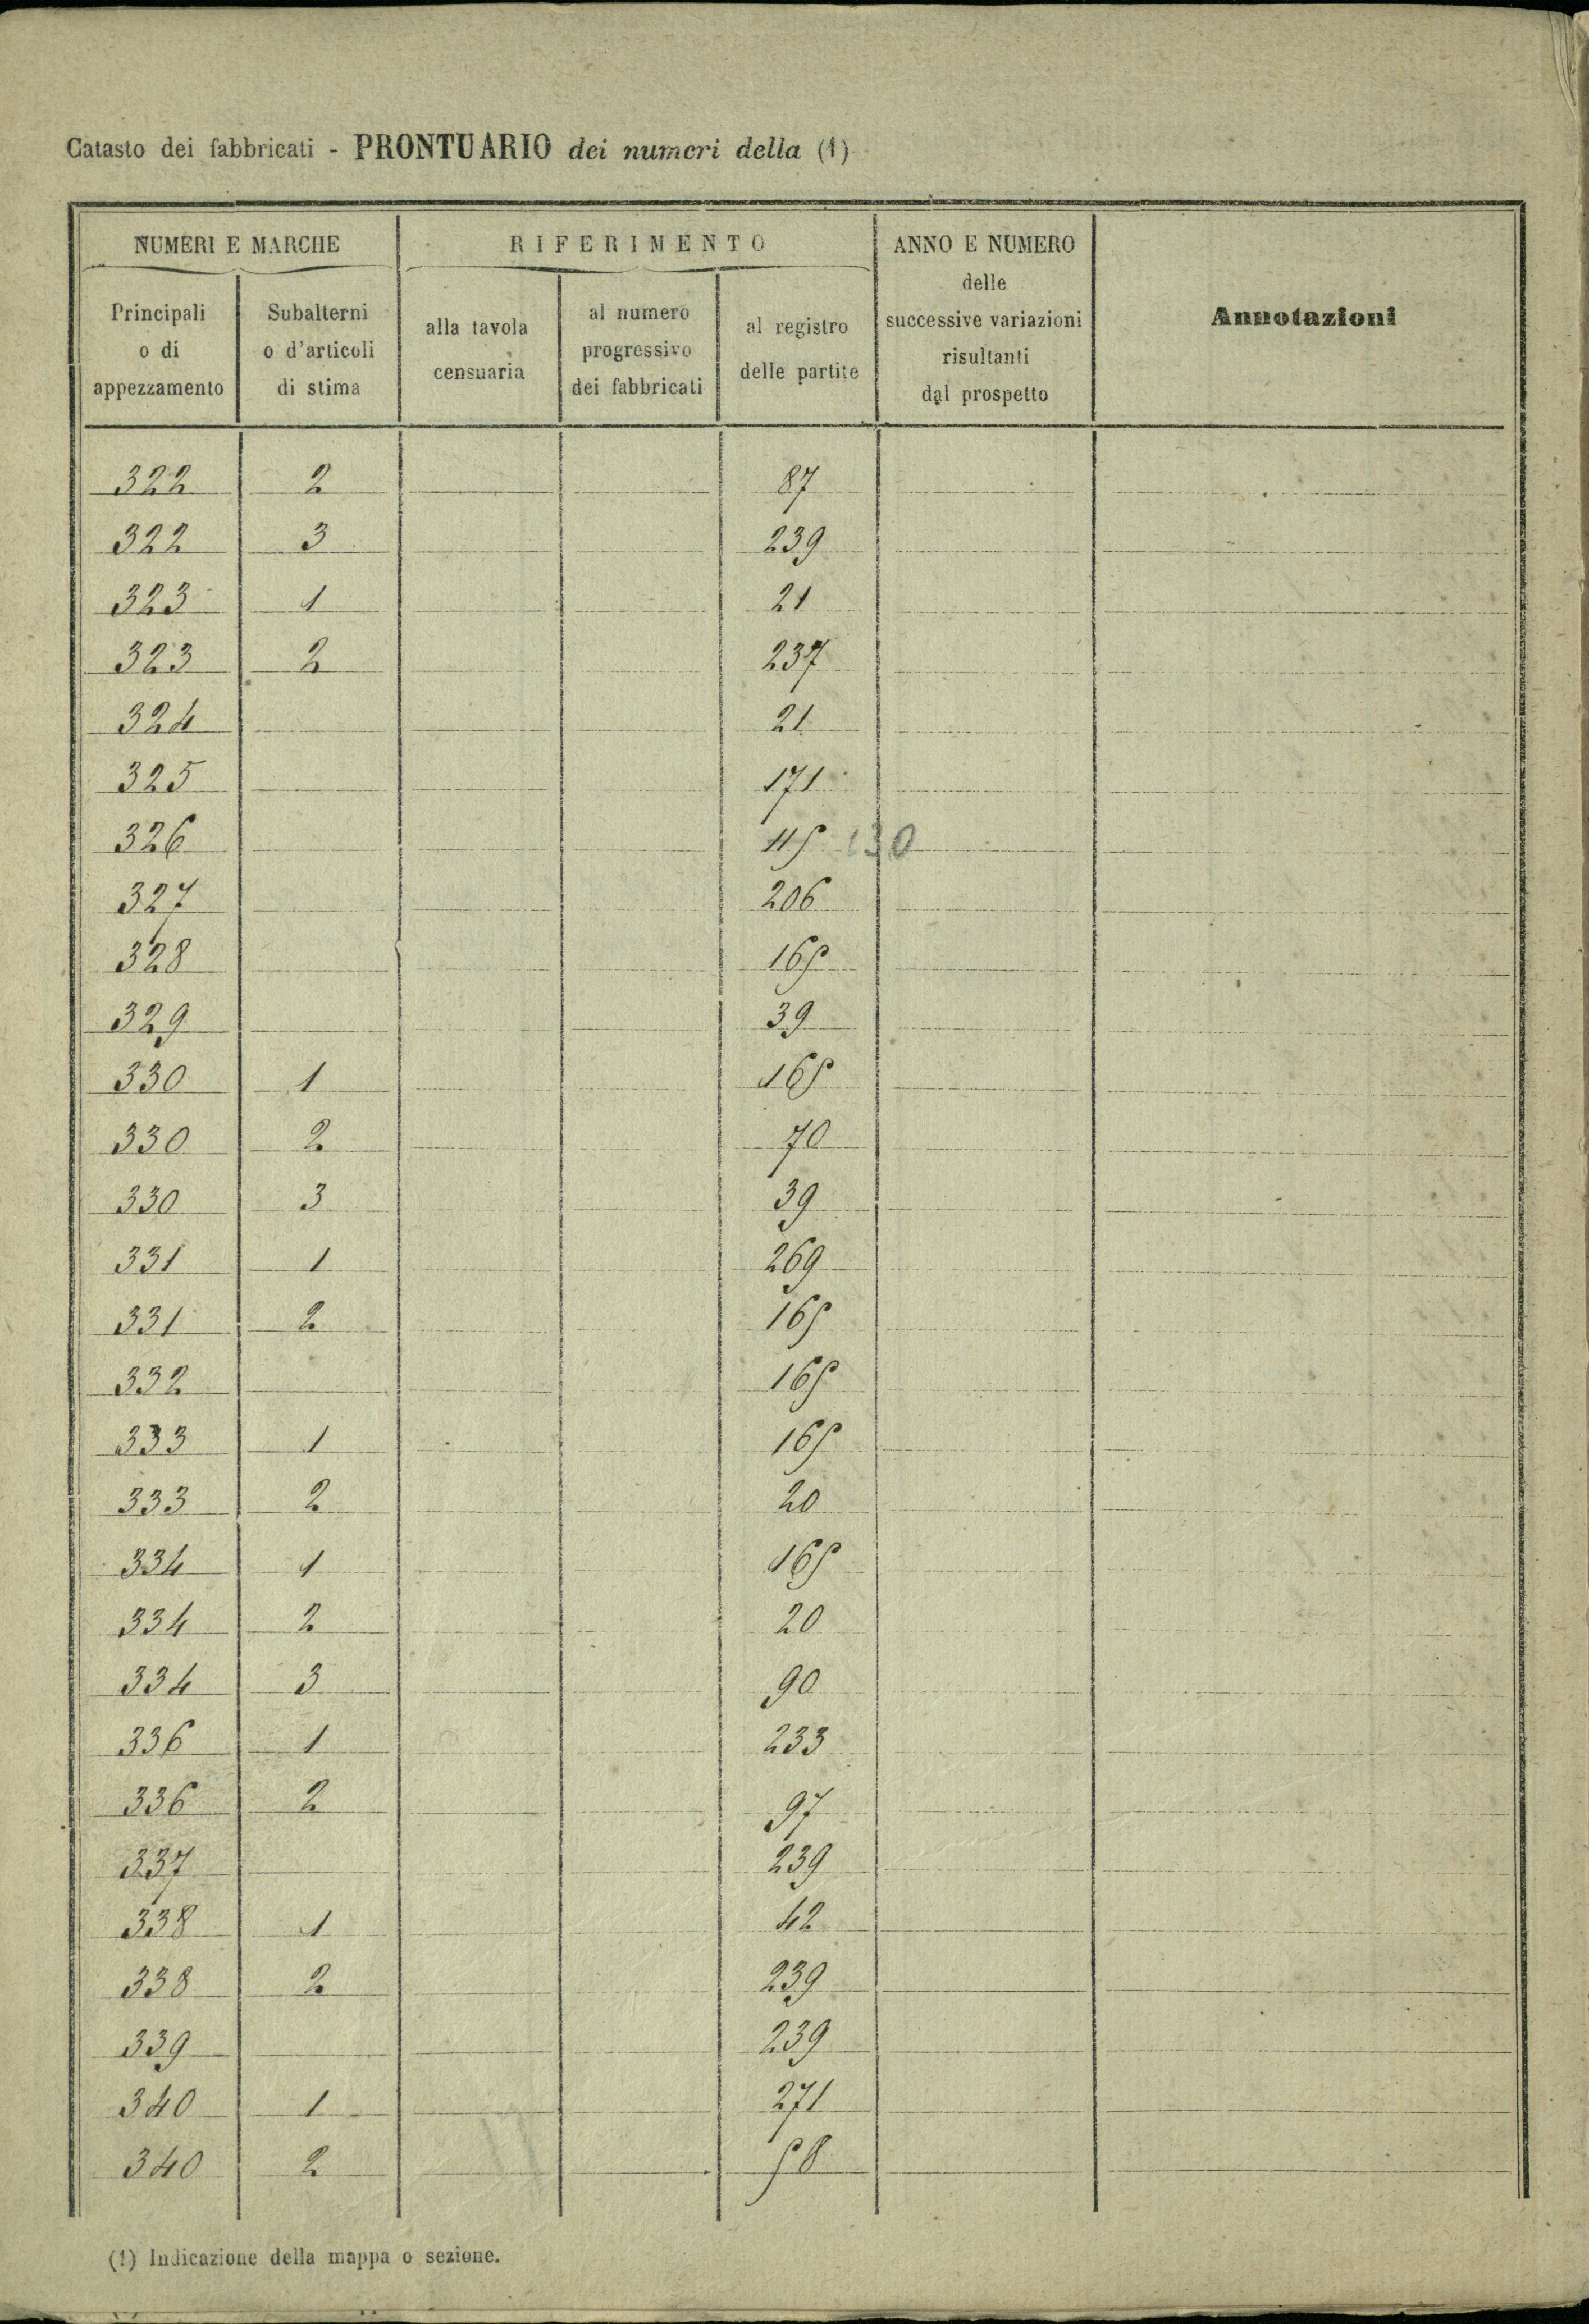 Catasto dei fabbricati - PRONTUARIO dei numeri della (1)
NUMERI E MARCHE
RIFERIMENTO
ANNO E NUMERO
delle
successive variazioni
risultanti
dal prospetto
Annotazioni
Principali
o di
appezzamento
Subalterni
o d'articoli
di stima
alla tavola
censuaria
al numero
progressivo
dei fabbricati
al registro
delle partite
322 2 87
322 3 239
323 1 21
323 2 237
324 21
325 171
326 115 130
327 206
328 165
329 39
330 1 165
330 2 70
330 3 39
331 1 269
331 2 165
332 165
333 1 165
333 2 20
334 1 165
334 2 20
334 3 90
336 1 233
336 2 97
337 239
338 1 42
338 2 239
339 239
340 1 271
340 2 58
(1) Indicazione della mappa o sezione.